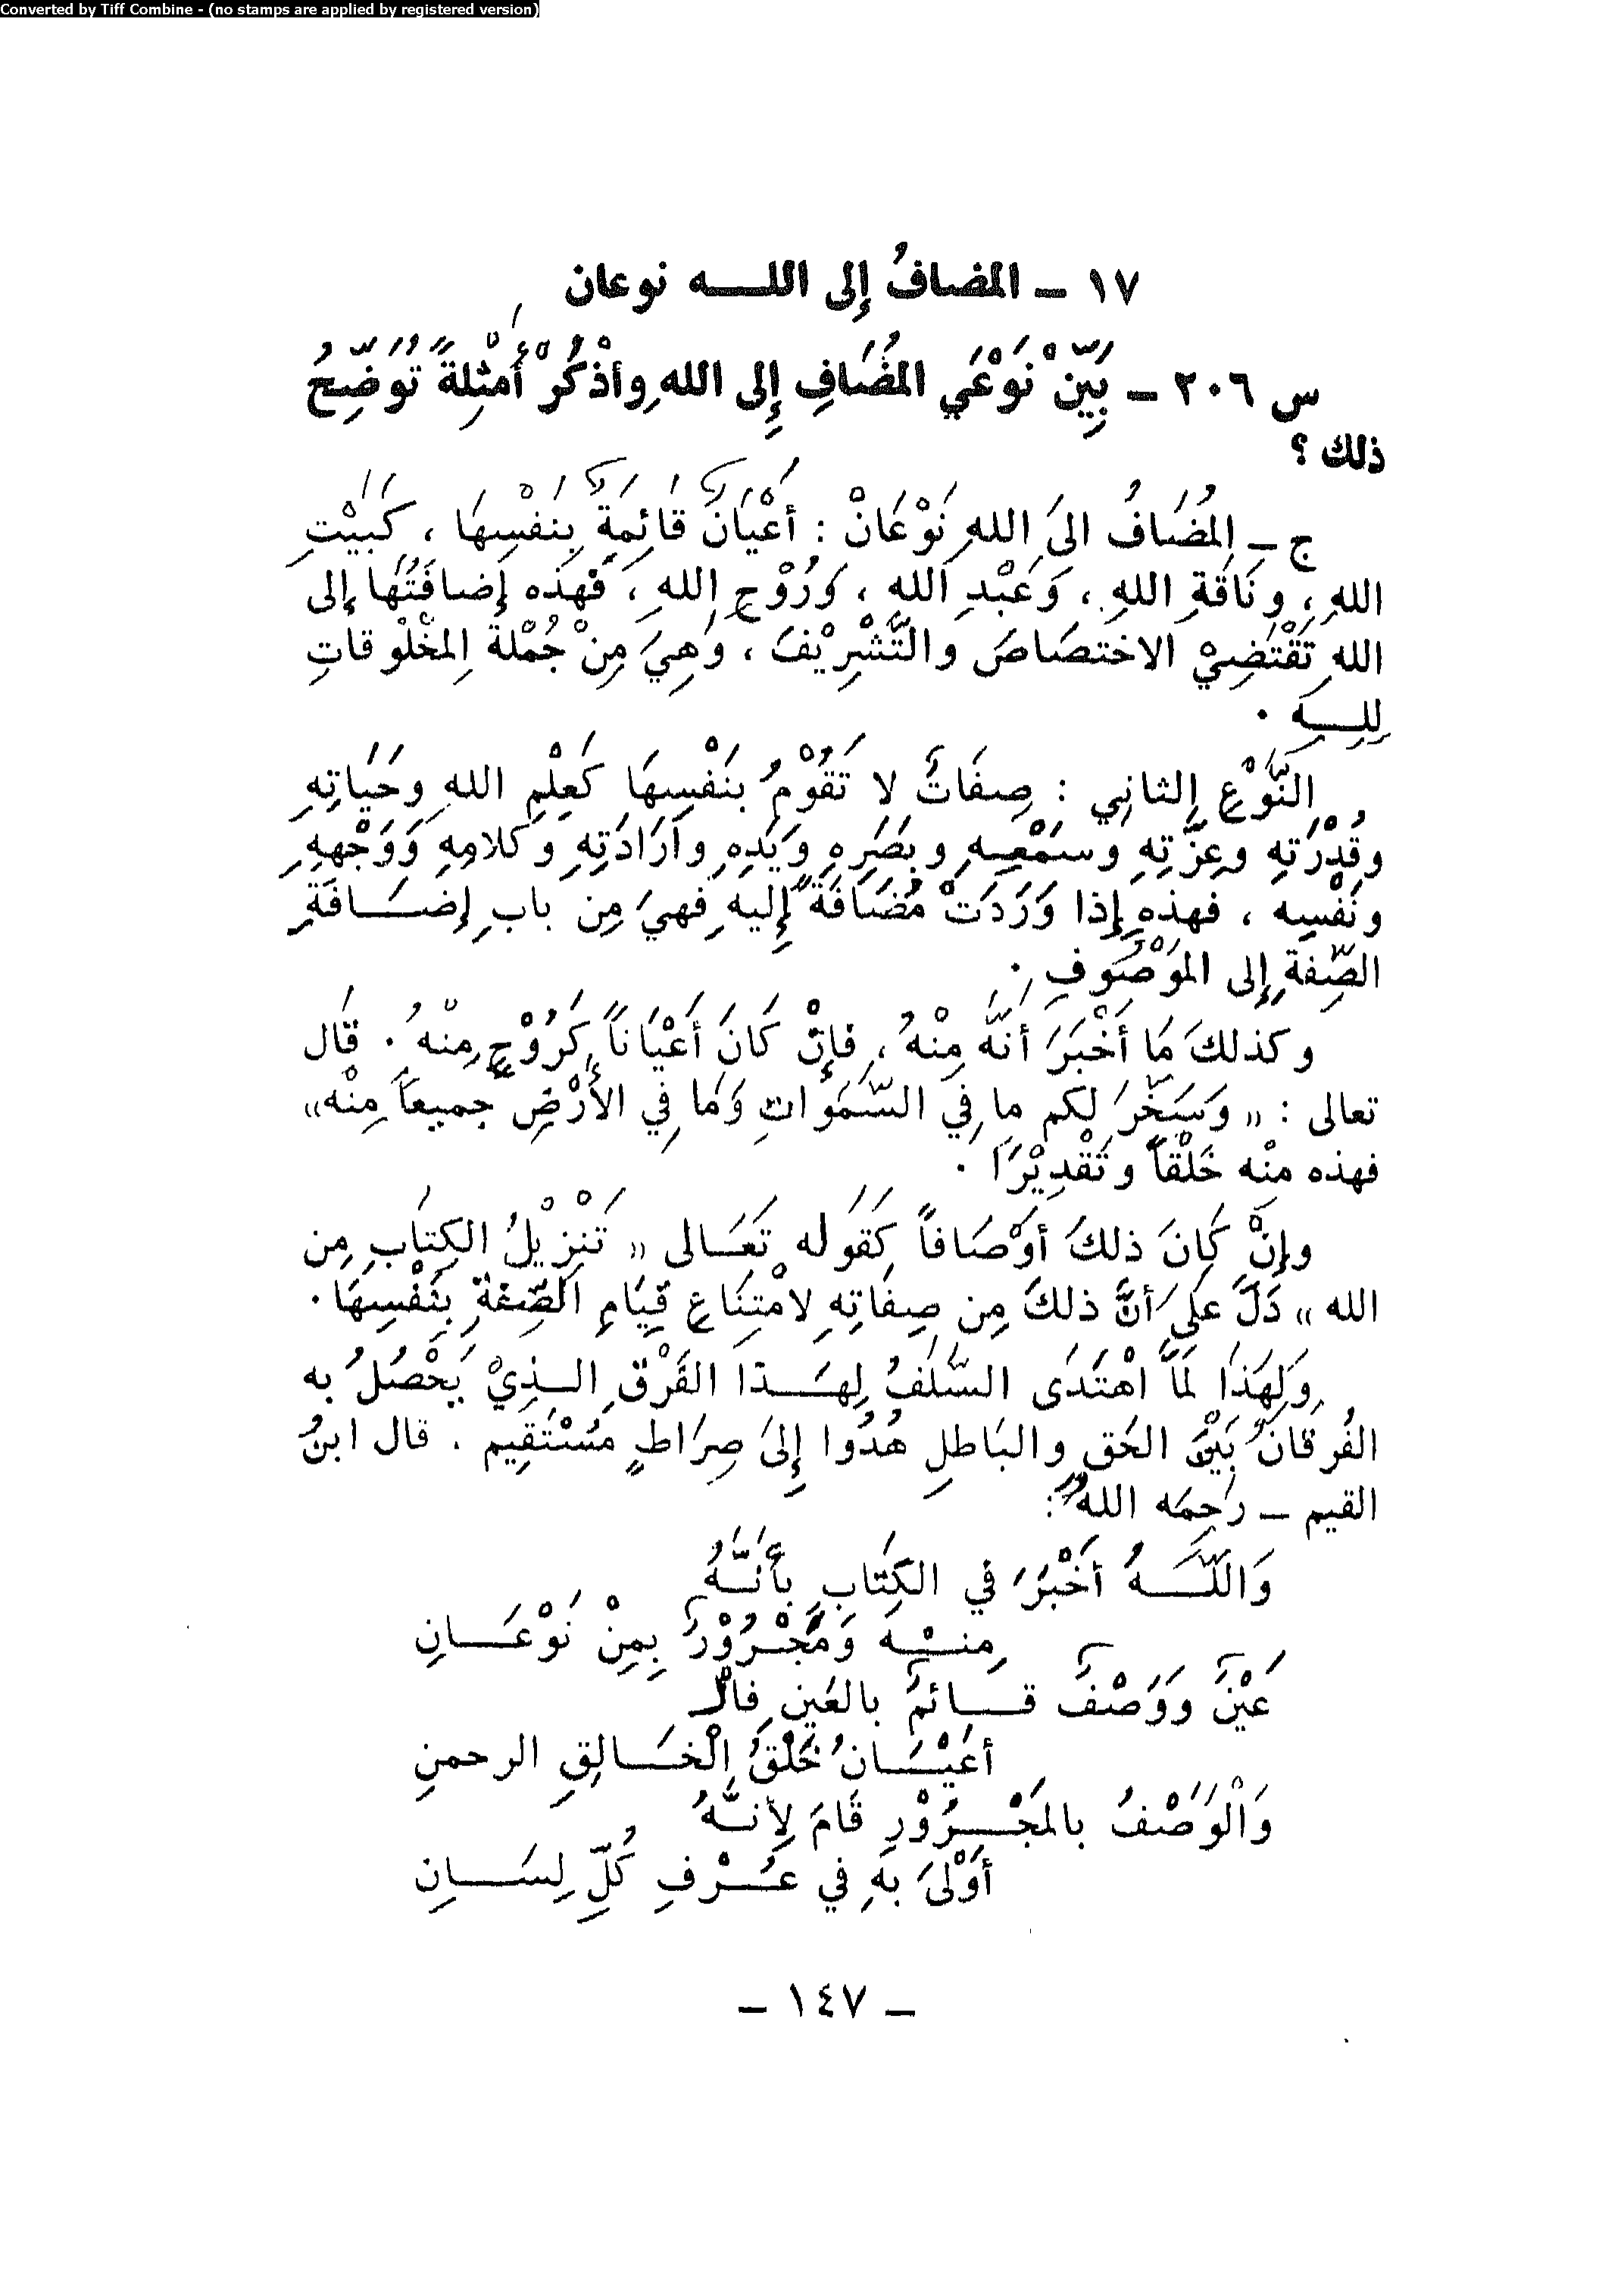 Converted by Tiff Combine - (no stamps are applied by registered version)
١٧ ــ المضافُ إلى اللــه نوعان
س ٢٠٦ ــ بَيِّنْ نَوْعَي المُضَافِ إِلى اللهِ وأذْكُرْ أَمْثِلةً تُوَضِّحُ
ذلك ؟
ج ــ المُضَافُ الىَ اللهِ نَوْعَانْ : أعْيَانٌ قَائِمَةٌ بِنَفْسِهَا ، كَبَيْتِ
اللهِ ، ونَاقَةِ اللهِ ، وَعَبْدِ اللهِ ، وَرُوْحِ اللهِ ، فَهَذه إضافَتُهَا إلى
اللهِ تَقْتَضِيْ الاختصَاصَ والتَّشْرِيْفَ ، وَهِيَ مِنْ جُمْلَةُ المخْلُوقاتِ
لِلــهِ .
النَّوْعِ الثانِي : صِفَاتٌ لا تَقُوْمُ بنَفْسِهَا كَعِلْمِ اللهِ وحَيَاتِهِ
وقُدْرَتهِ وعِزَّتِهِ وسَمْعِــهِ وبصَرِهِ وَيَدِهِ وارَادَتِهِ وكَلامِهِ وَوَجْهِهِ
ونَفْسِه ، فهذهِ إذا وَرَدَتْ مُضَافَةً إِليهِ فهيَ مِن بابِ إضَــافَةِ
الصِّفةِ إلى المَوْصُوفِ .
وكذلكَ مَا أَخْبَرَ أنَّهُ مِنْهُ ، فإنْ كَانَ أعْيَاناً كَرُوْحٍ مِنْهُ . قَال
تعالى : « وَسَخَّرَ لكم ما في السَّمَوَاتِ وَمَا في الأَرْضِ جميعاً مِنْه»
فهذه مِنْه خَلْقاً وتَقْدِيْرَاً .
وإنْ كَانَ ذلكَ أوْصَافاً كَقَوله تَعَــالى « تَنْزِيْلُ الكِتَابِ مِن
الله » دَلَّ عَلىَ أَنَّ ذلكَ مِن صِفَاتِهِ لامْتِنَاعِ قِيَامِ الصِّفةِ بِنَفْسِهَا .
وَلِهَذَا لَمَّا اهْتَدَى السَّلَفُ لِهــذَا الفَرْقِ الــذِيْ يَحْصُلُ به
الفُرقَانُ بَيْنَ الحَق والبَاطلِ هُدُوا إِلىَ صِرَاطٍ مُسْتَقِيم . قال ابنُ
القيم ــ رَحِمَه اللهُ :
وَاللَّــهُ أخْبَرَ في الكِتَابِ بأَنَّــهُ
مِنــْه وَمَجْــرُوْرٌ بِمِنْ نَوْعَــانِ
عَيْنٌ وَوَصْفٌ قــائمٌ بالعَينِ فالْـ
أعْيَــانُ خَلْقُ الْخَــالِقِ الرحمنِ
وَالْوَصْفُ بالمَجْــرُوْرِ قَامَ لأِنَّــهُ
أَوْلىَ بهِ في عُــرْفِ كُلِّ لِسَــانِ
ــ ١٤٧ ــ